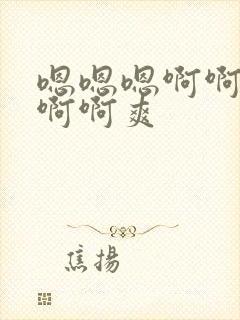 嗯嗯嗯啊啊
啊啊爽
焦揚